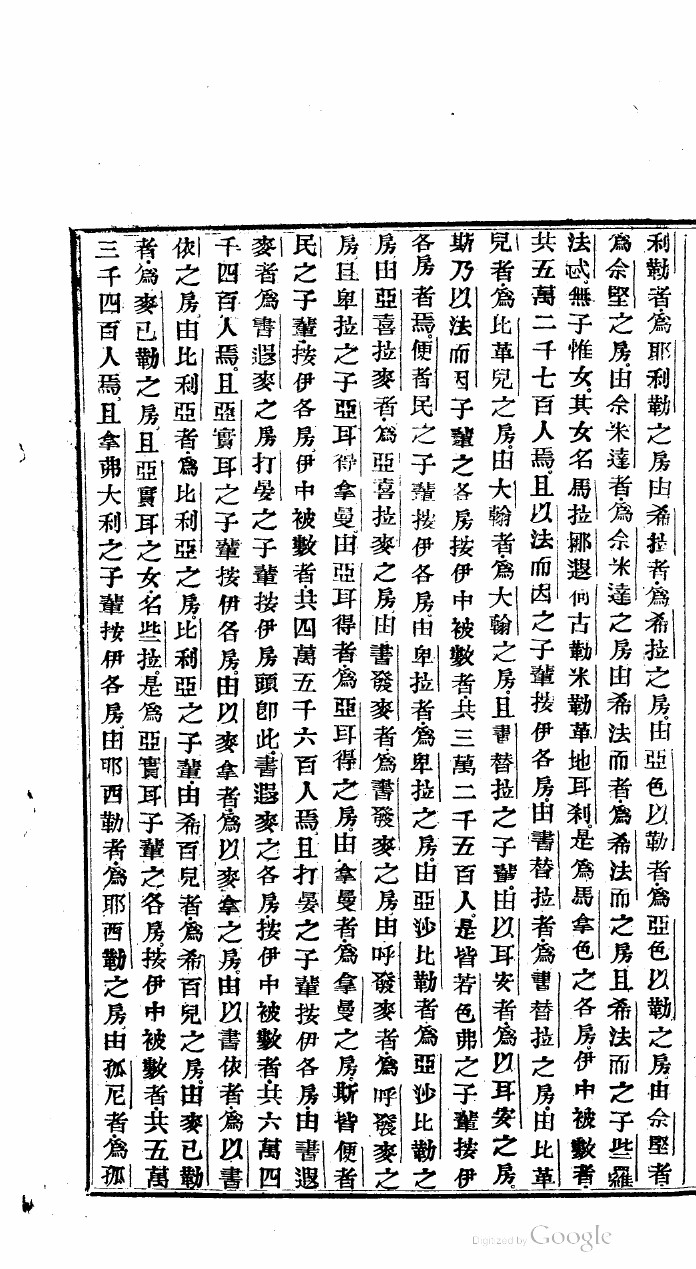 利勒者爲耶利勒之房由希拉者爲希拉之房由亞色以勒者爲亞色以勒之房由佘堅者
爲佘堅之房由佘米達者爲佘米達之房由希法而者爲希法而之房且希法而之子些羅
法 無子惟女其女名馬拉挪遐何古勒米勒革地耳利是爲馬拿色之各房伊中被數者
共五萬二千七百人焉且以法而因之子輩按伊各房由書替拉者爲書替拉之房由比革
兒者爲比革兒之房由大翰者爲大翰之房且書替拉之子輩由以耳安者爲以耳安之房
斯乃以法而因子輩之各房按伊中被數者共三萬二千五百人是皆若色弗之子輩按伊
各房者焉便者民之子輩按伊各房由卑拉者爲卑拉之房由亞沙比勒者爲亞沙比勒之
房由亞喜拉麥者爲亞喜拉麥之房由書發麥者爲書發麥之房由呼發麥者爲呼發麥之
房且卑拉之子亞耳得拿曼由亞耳得者爲亞耳得之房由拿曼者爲拿曼之房斯皆便者
民之子輩按伊各房伊中被數者共四萬五千六百人焉且打晏之子輩按伊各房由書遐
麥者爲書遐麥之房打晏之子輩按伊房頭卽此書遐麥之各房按伊中被數者共六萬四
千四百人焉且亞實耳之子輩按伊各房由以麥拿者爲以麥拿之房由以書依者爲以書
依之房由比利亞者爲比利亞之房比利亞之子輩由希百兒者爲希百兒之房由麥已勒
者爲麥已勒之房且亞實耳之女名些拉是爲亞實耳子輩之各房按伊中被數者共五萬
三千四百人焉且拿弗大利之子輩按伊各房由耶西勒者爲耶西勒之房由孤尼者爲孤
Digitized by Google